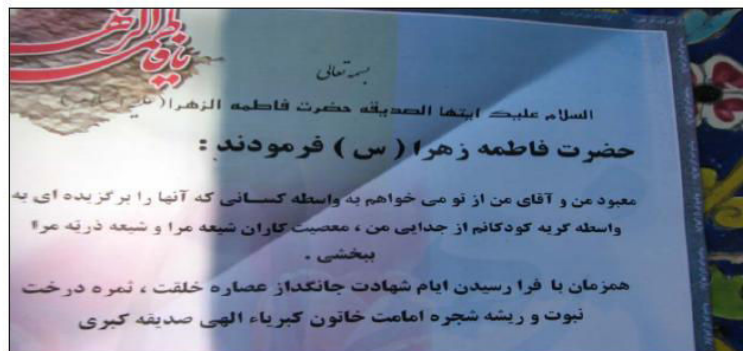 یا فاطمة الزهرا
بسمه تعالی
السلام علیک ایتها الصدیقه حضرت فاطمه الزهرا
حضرت فاطمه زهرا ( س ) فرمودند :
معبود من و آقای من از تو می خواهم به واسطه کسانی که آنها را برگزیده ای به
واسطه گریه کودکانم از جدایی من ، معصیت کاران شیعه مرا و شیعه ذریّه مرا
ببخشی .
همزمان با فرا رسیدن ایام شهادت جانگداز عصاره خلقت ، ثمره درخت
نبوت و ریشه شجره امامت خاتون کبریاء الهی صدیقه کبری